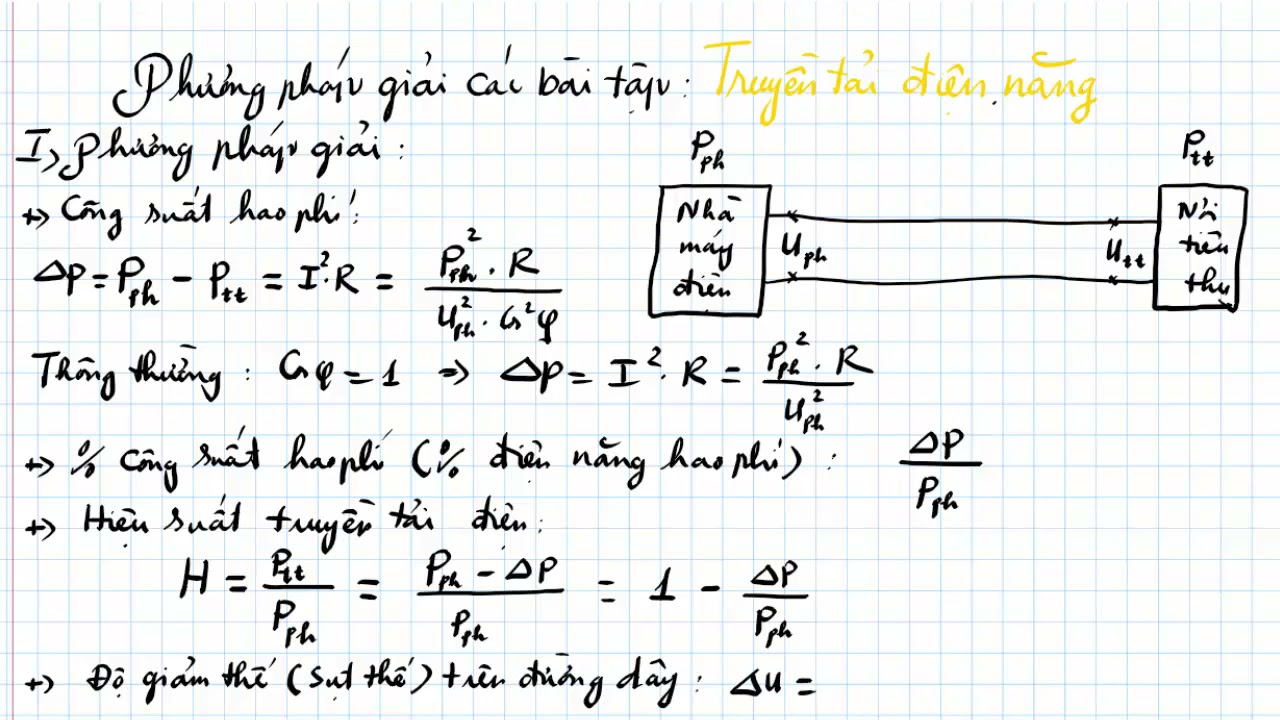 Phương pháp giải các bài tập: Truyền tải điện năng
I, Phương pháp giải:
+> Công suất hao phí:
ΔP = Pph - Ptt = I².R = Pph².R / Uph².Cos²φ
Pph
Nhà
máy
điện
Uph
Utt
Ptt
Nơi
tiêu
thụ
Thông thường: Cosφ = 1 => ΔP = I².R = Pph².R / Uph²
+> % Công suất hao phí (% điện năng hao phí): ΔP / Pph
+> Hiệu suất truyền tải điện:
H = Ptt / Pph = Pph - ΔP / Pph = 1 - ΔP / Pph
+> Độ giảm thế (sụt thế) trên đường dây: ΔU =